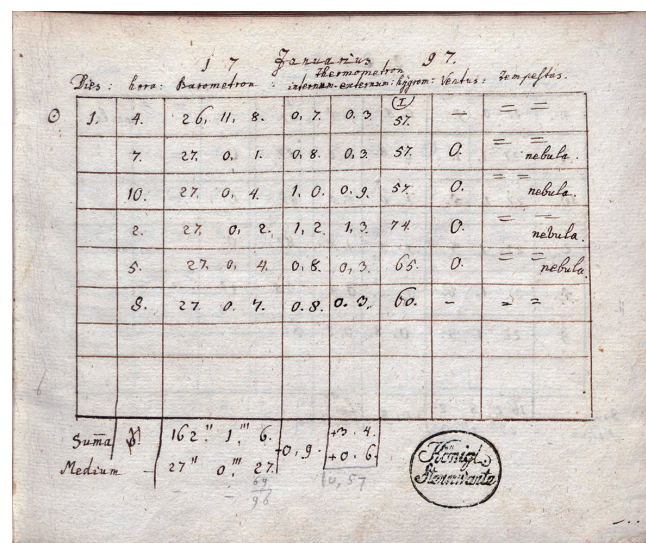 17 Januarius 97.
Thermometron
Dies: hora: Barometron: internum externum: hygrom: Ventus: Tempestas.
☉ 1. 4. 26, 11, 8. 0, 7. 0, 3 (I) 57. — = =
7. 27. 0, 1. 0, 8. 0, 3. 57. O. = = nebula.
10. 27. 0, 4. 1, 0. 0, 9. 57. O. = = nebula.
2. 27. 0, 2. 1, 2. 1, 3. 74. O. = = nebula.
5. 27, 0, 4. 0, 8. 0, 3. 65. O. = = nebula.
8. 27. 0. 7. 0.8. 0. 3. 60. - = =
Sum̄a 162." 1,"' 6. +3. 4.
+0, 9. +0. 6.
Medium — 27" 0,"' 27. 0,57
69
96
Königl.
Sternwarte